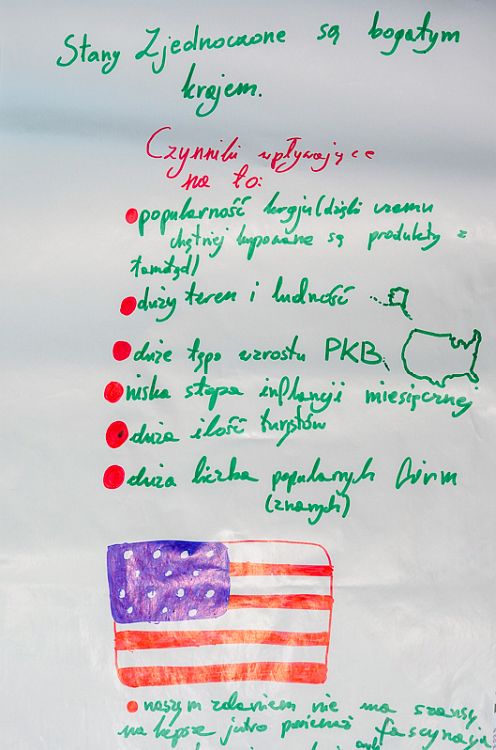 Stany Zjednoczone są bogatym
krajem.
Czynniki wpływające
na to:
popularność kraju (dzięki czemu
chętniej kupowane są produkty z
tamtąd)
duży teren i ludność
duże tępo wzrostu PKB
niska stopa inflancji miesięcznej
duża ilość turystów
duża liczba popularnych firm
(znanych)
naszym zdaniem nie ma szansy
na lepsze jutro ponieważ fascynacja